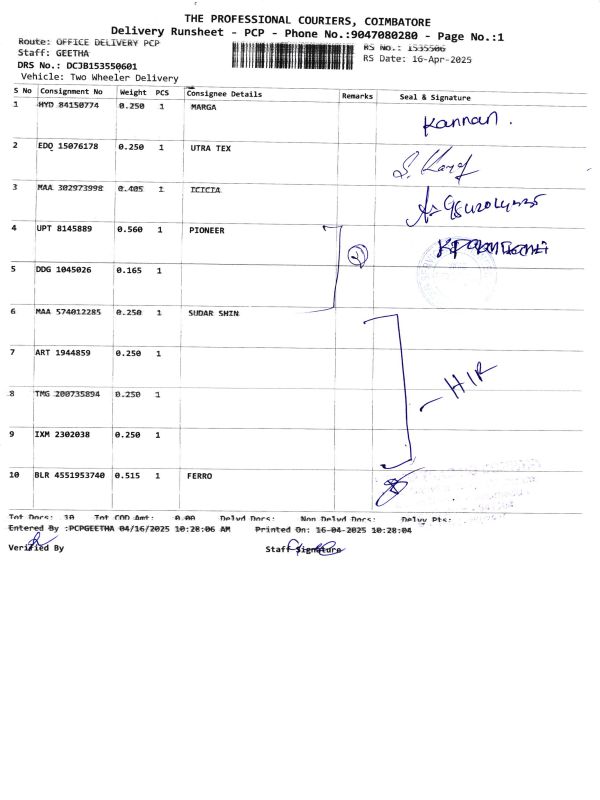 THE PROFESSIONAL COURIERS, COIMBATORE
Delivery Runsheet - PCP - Phone No.:9047080280 - Page No.:1
Route: OFFICE DELIVERY PCP
RS No.: 1535506
Staff: GEETHA
RS Date: 16-Apr-2025
DRS No.: DCJB153550601
Vehicle: Two Wheeler Delivery
S No Consignment No Weight PCS Consignee Details Remarks Seal & Signature
1 HYD 84150774 0.250 1 MARGA Kannan.
2 EDQ 15076178 0.250 1 UTRA TEX
3 MAA 302973998 0.405 1 ICICIA
4 UPT 8145889 0.560 1 PIONEER
5 DDG 1045026 0.165 1
6 MAA 574012285 0.250 1 SUDAR SHIN
7 ART 1944859 0.250 1
8 TMG 200735894 0.250 1
9 IXM 2302038 0.250 1
10 BLR 4551953740 0.515 1 FERRO
Tot Docs: 10 Tot COD Amt: 0.00 Delvd Docs: Non Delvd Docs: Delvy Pts:
Entered By :PCPGEETHA 04/16/2025 10:28:06 AM Printed On: 16-04-2025 10:28:04
Verified By Staff Signature